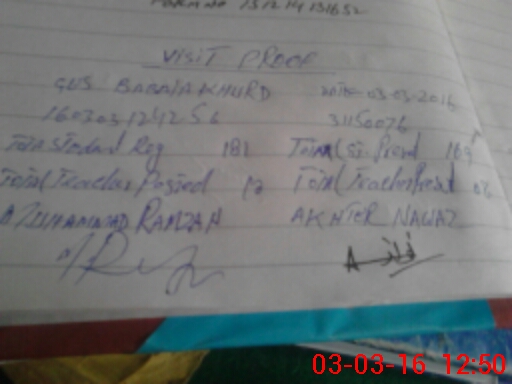 VISIT PROOF
GBS BABAIA KHURD DATE 03-03-2016
160303124256 31150076
Total Student Reg 181 Total St. Present 169
Total Teacher Posted 12 Total Teacher Present
MUHAMMAD RAMZAN AKHTER NAWAZ
03-03-16 12:50